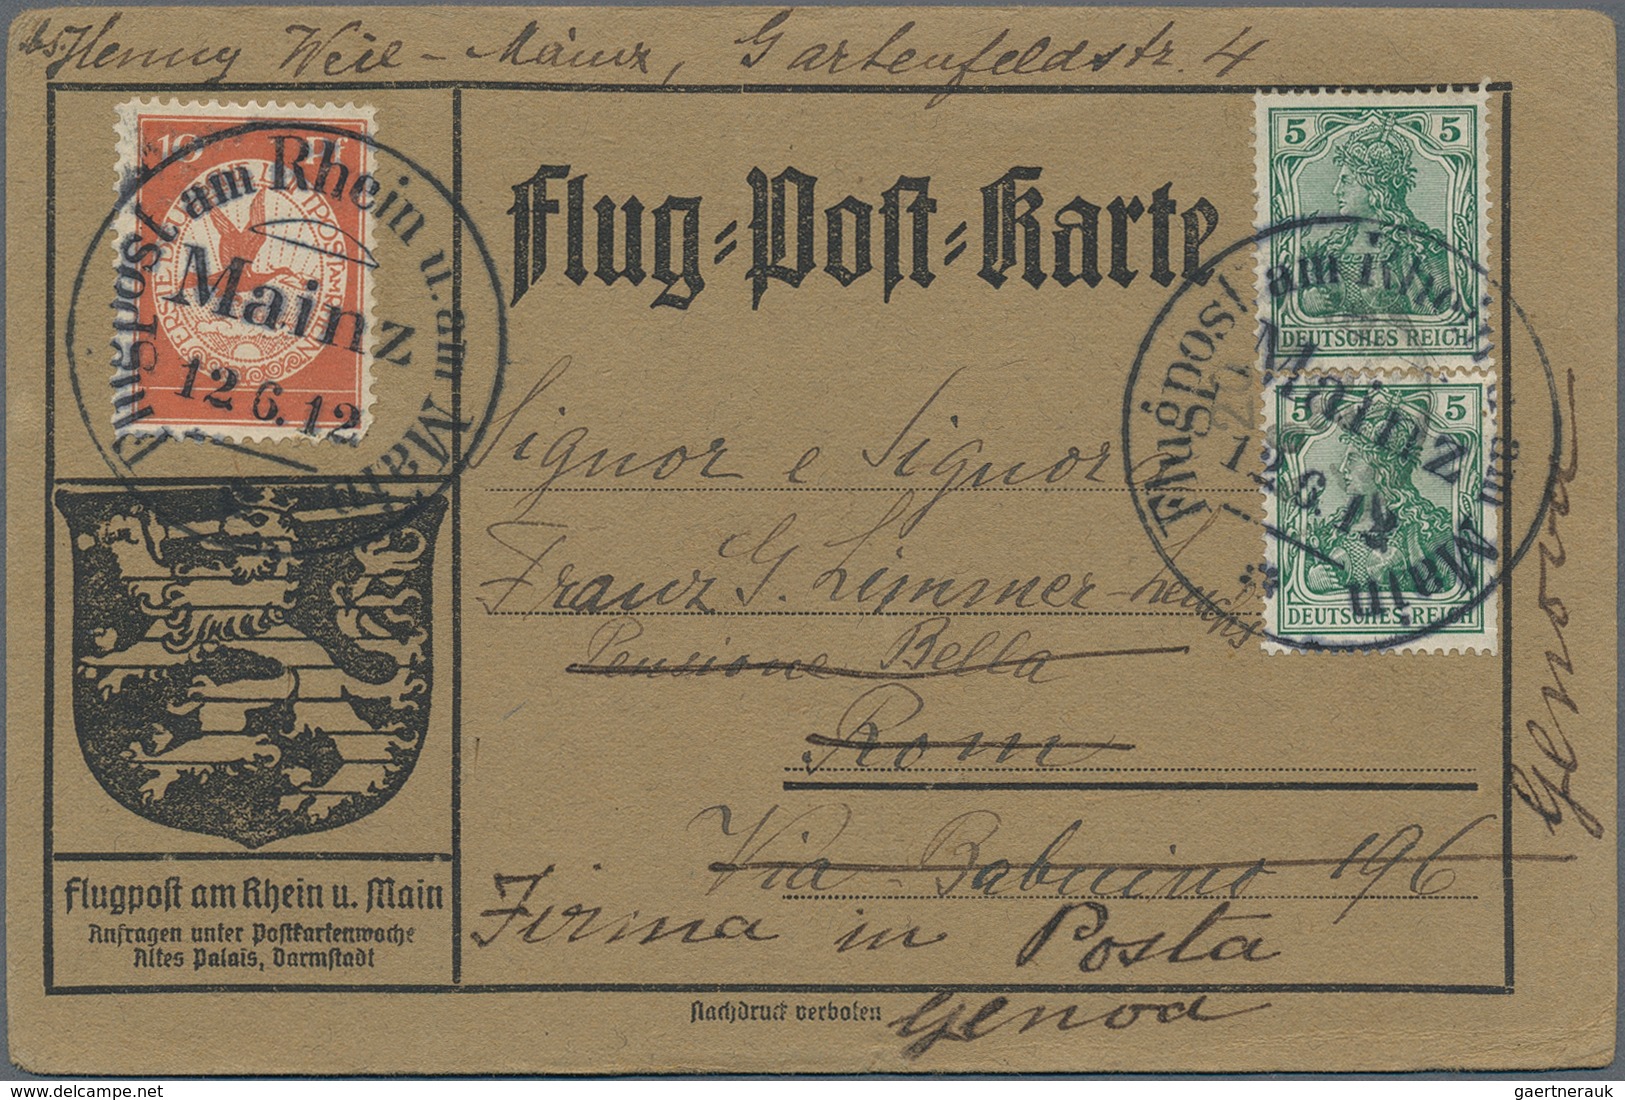 Henny Weil - Mainz, Gartenfeldstr. 4
10 Pf
Flugpost am Rhein u. am Main
Mainz
12.6.12
Flug-Post-Karte
5 5
DEUTSCHES REICH
5 5
DEUTSCHES REICH
Flugpost am Rhein u. am Main
Mainz
12.6.12
Signor e Signora
Franz G. Limmer-
Pensione Bella
Rom
Via Babuino 196
Firma in Posta
Genova
Genova
Flugpost am Rhein u. Main
Anfragen unter Postkartenwoche
Altes Palais, Darmstadt
Nachdruck verboten
delcampe.net
gaertnerauk